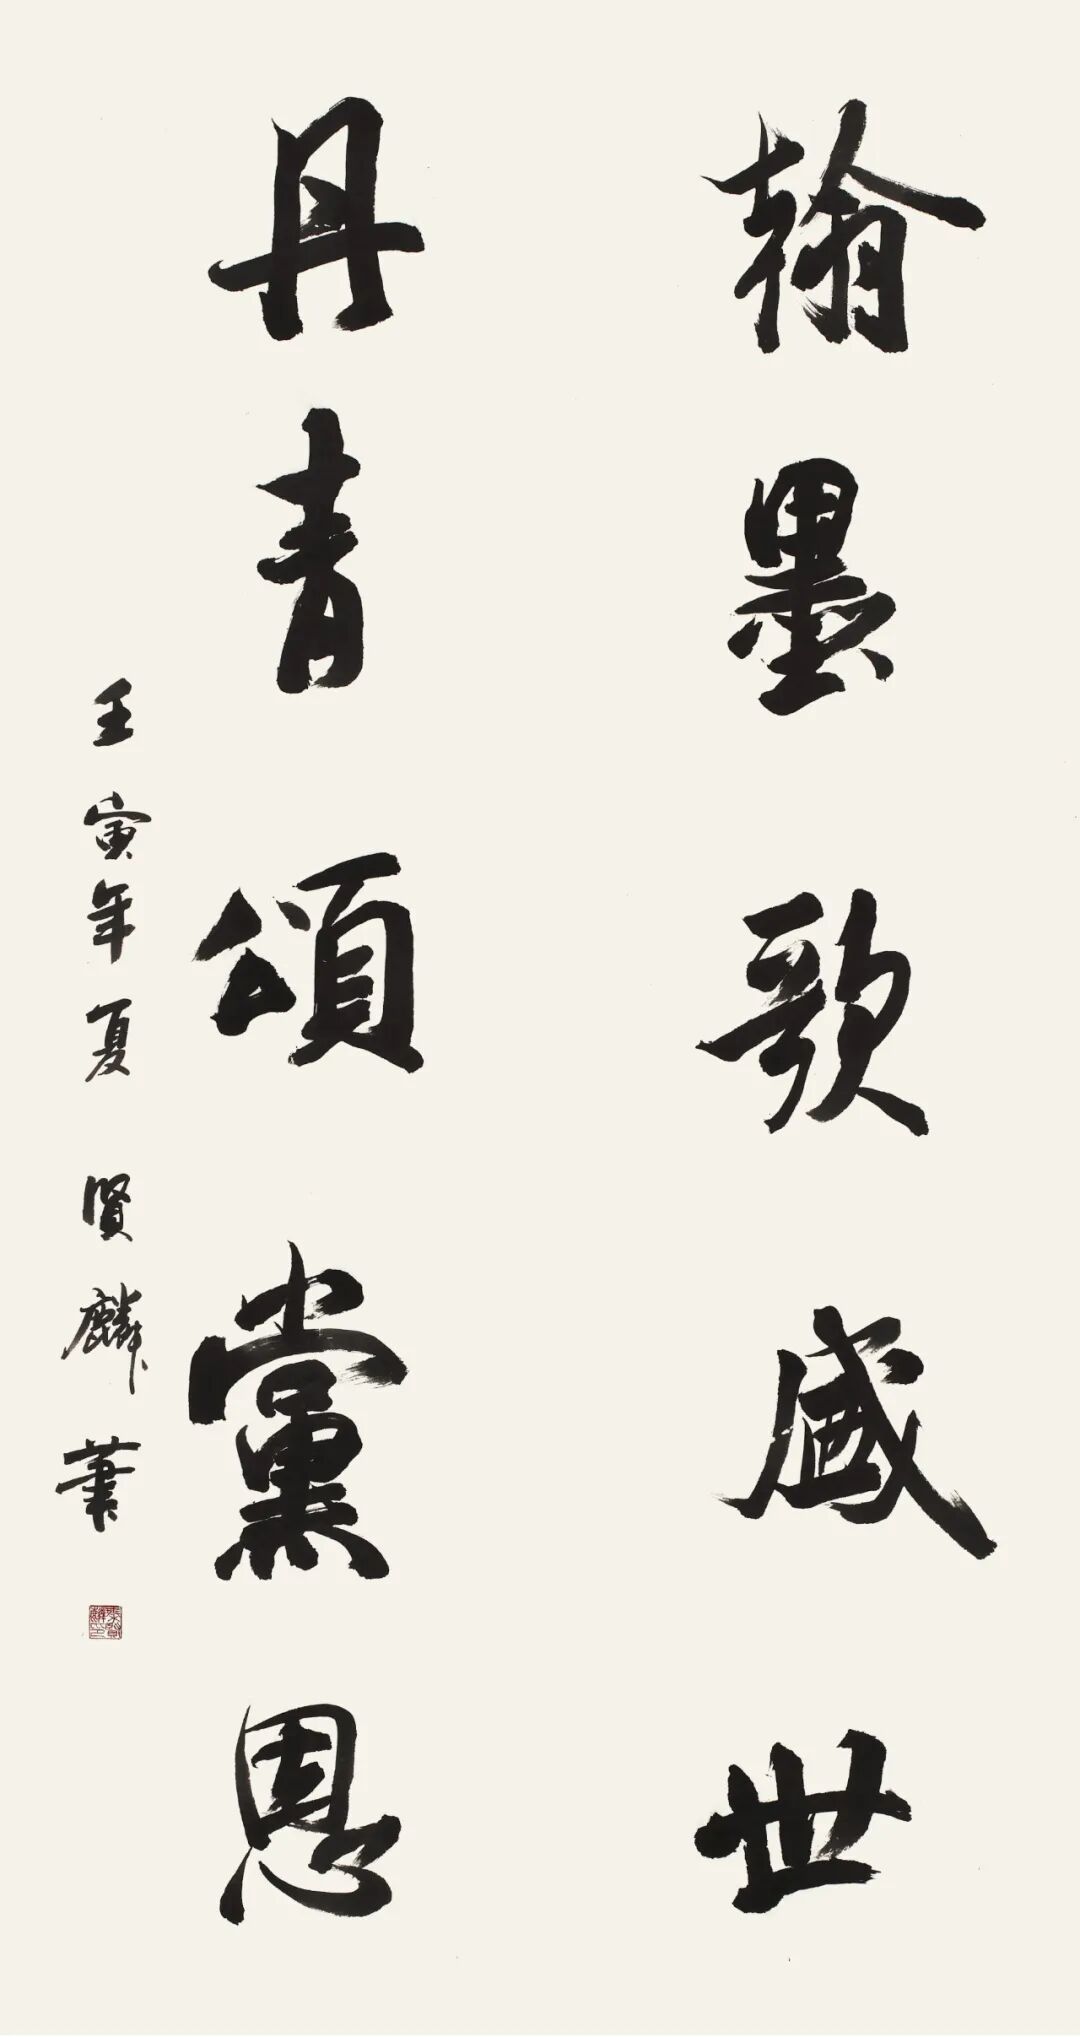 翰墨歌盛世
丹青頌黨恩
壬寅年夏 賢麟筆